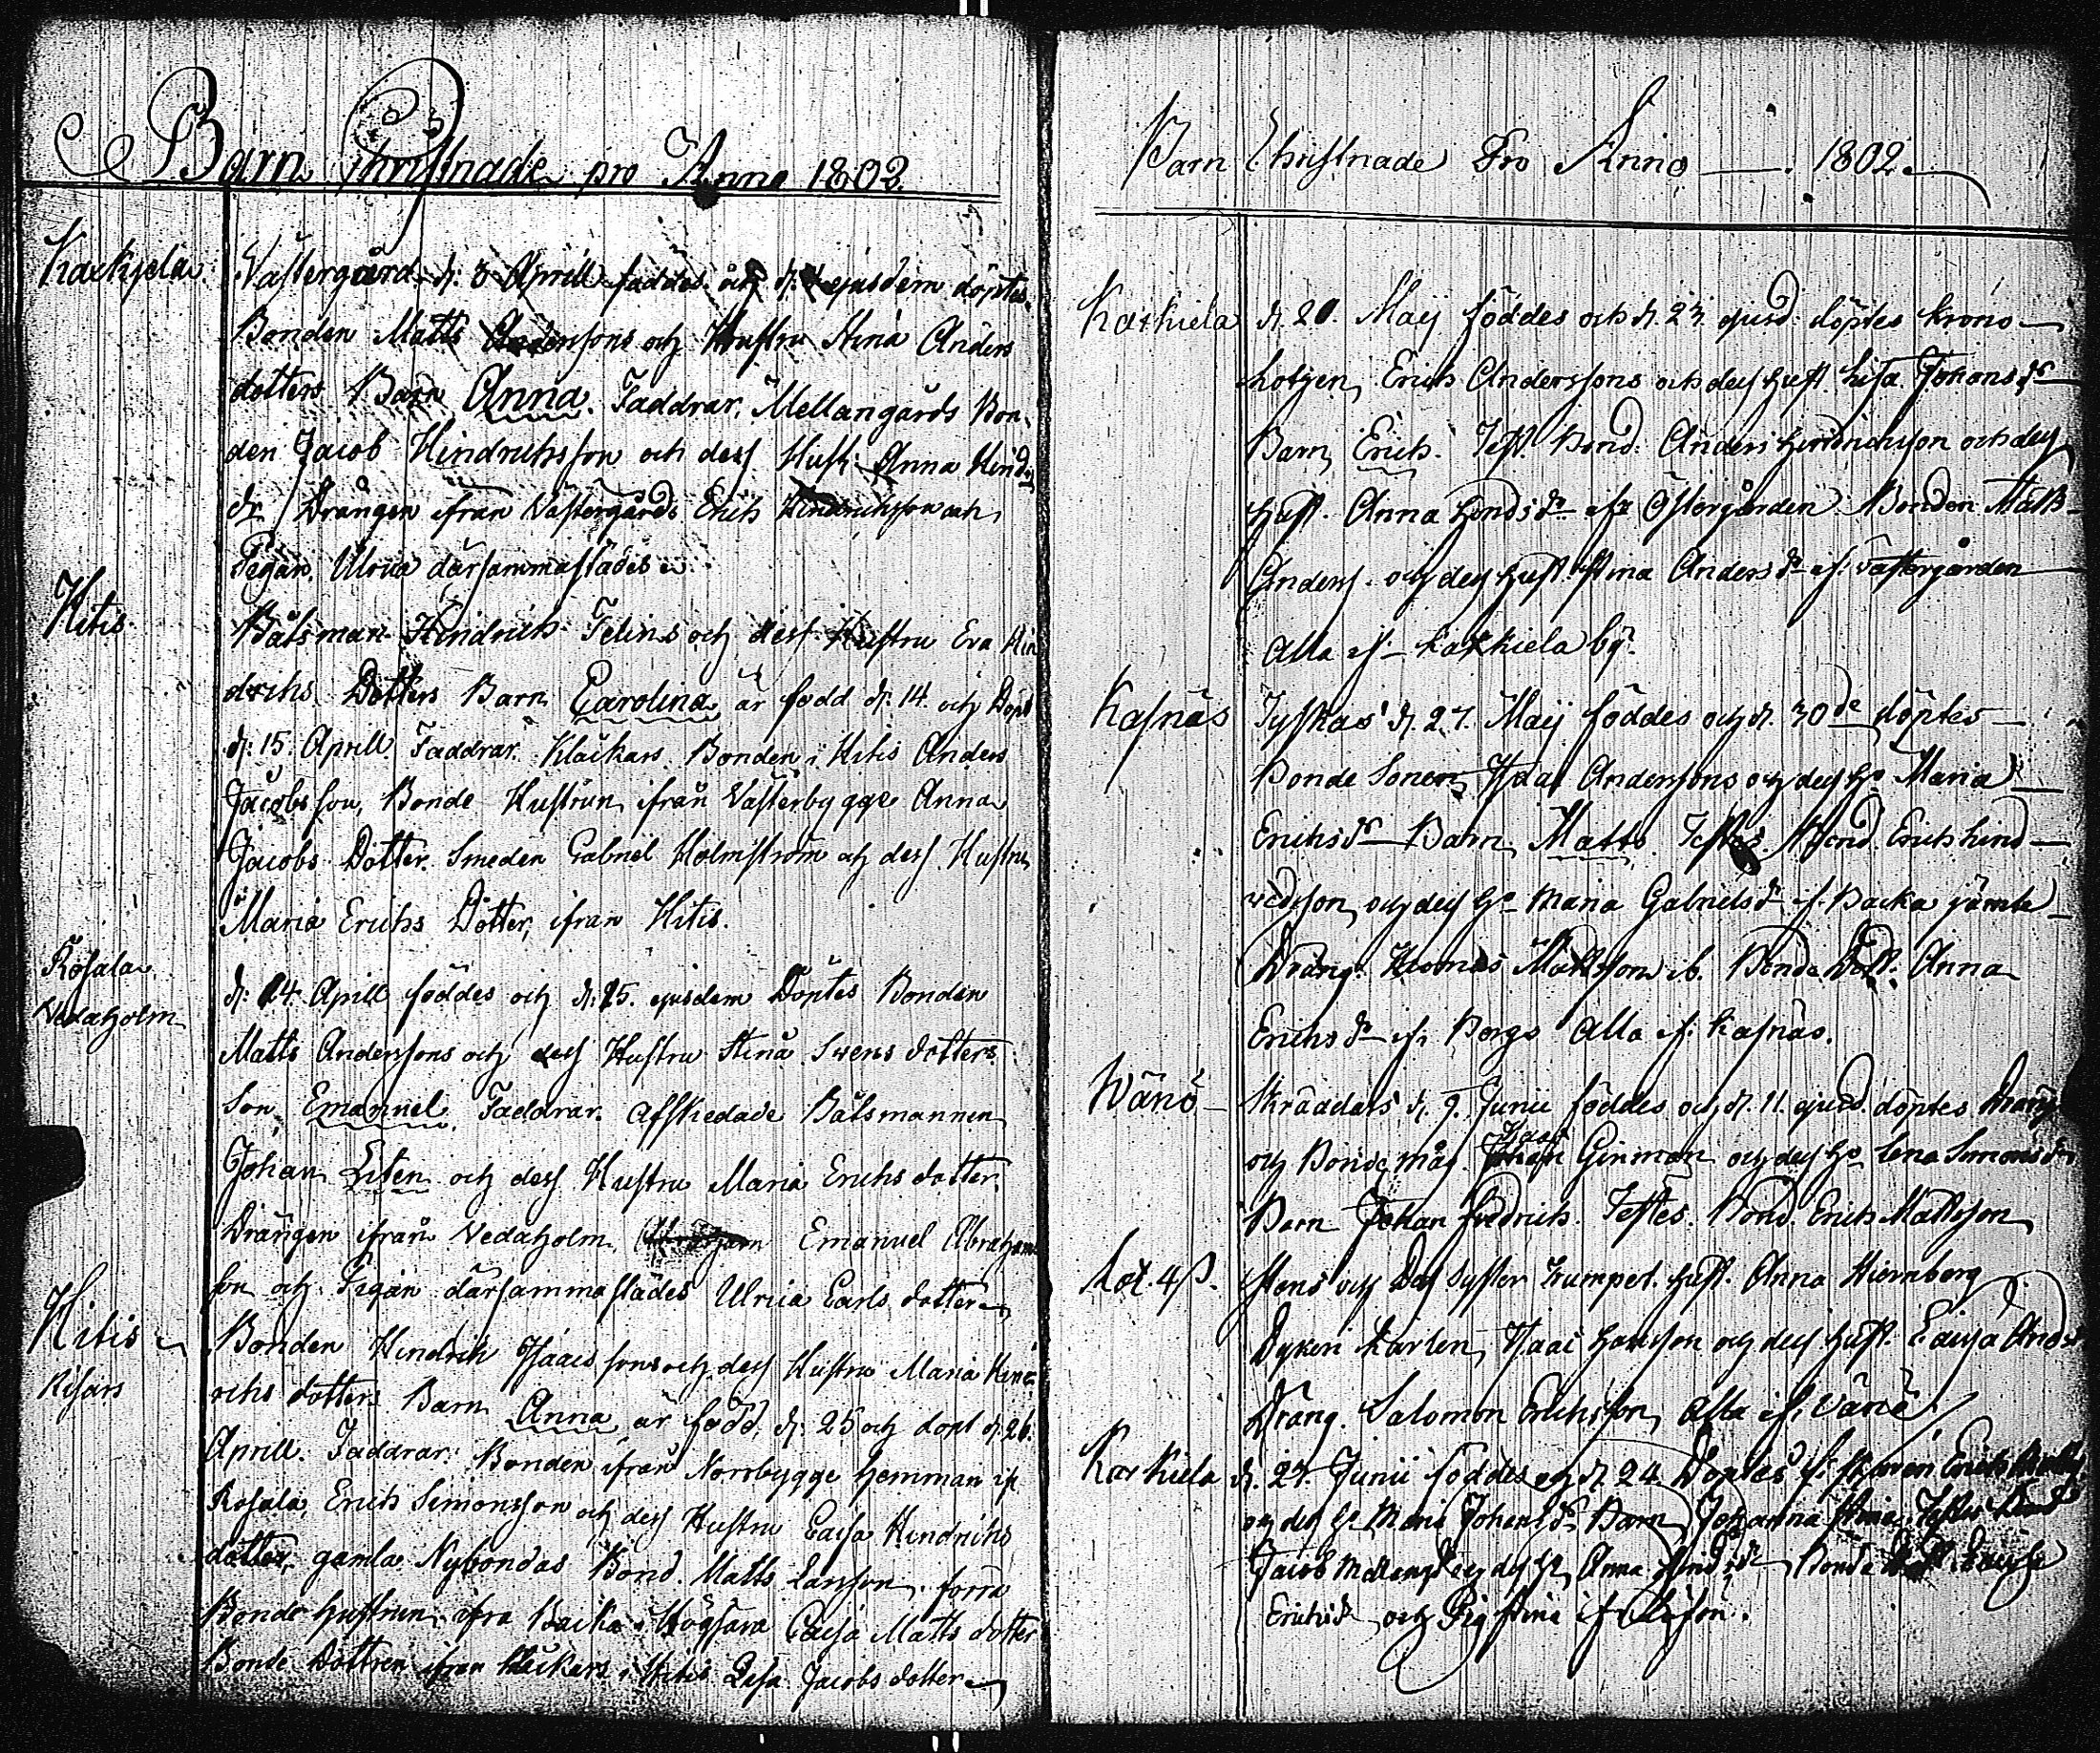 Barn Christnade pro Anno 1802
Karkjela
Västergård d: 3 Aprill föddes och d: ejusdem döptes
Bonden Matts Anderssons och Hustru Stina Anders
dotters Barn Anna. Faddrar, Mellangårds Bon-
den Jacob Hindrichsson och dess Hust: Anna Hind
dr Drängen ifrån Västergårds Erich Hindrichsson och
Pigan Ulrica därsammastädes
Hitis.
Båtsman Hindrich Felins och dess Hustru Eva Hin
drichs Dotters Barn Carolina är född d: 14. och Döpt
d: 15. Aprill. Faddrar. Kläckars Bonden i Hitis Anders
Jacobsson, Bonde Hustrun ifrån Västerbygge Anna
Jacobs Dotter. Smeden Gabriel Holmström och dess Hustru
Maria Erichs Dotter, ifrån Hitis.
Rosala
Vedaholm
d: 24. Aprill föddes och d: 25. ejusdem Döptes Bonden
Matts Anderssons och dess Hustru Stina Svens dotters
Son Emanuel. Faddrar. Afskedade Båtsmannen
Johan Liten och dess Hustru Maria Erichs dotter.
Drängen ifrån Vedaholm Emanuel Abrahams
son och Pigan därsammastädes Ulrica Carls dotter
Hitis
Bonden Hindrik Isaacs sons och dess Hustru Maria Hind
richs dotters Barn Anna är född, d: 25 och döpt d: 26.
Aprill. Faddrar: Bonden ifrån Norrbygge hemman i
Rosala, Erich Simonsson och dess Hustru Caisa Hindrichs
dotter, gamla Nybondas Bond. Matts Larsson, förra
Bonde hustrun ifrå Backa i Högsara Caisa Matts dotter
Bonde Dottren ifrån Kläckars i Hitis Lisa Jacobs dotter
Barn Christnade Pro Anno 1802.
Karkiela d. 20. Maij föddes och d. 23. ejusd. döptes krono-
Erich Anderssons och dess hust. Lisa Johans dr
Barn Erich. Test. Bond: Anders Hindrichsson och dess
hust. Anna Hindsdr ifr Östergården. Bonden Matts
Anderss. och dess hust. Stina Andersdr if. Västergården
Alla if. Karkiela by.
Kasnäs Tyskas d. 27. Maij föddes och d. 30de döptes
Bonde Sonen Isaac Anderssons och dess Ho Maria
Erichsdr Barn Matts. Testes. Bond. Erich Hind-
richsson och dess Ho Maria Gabrielsdr if. Backa jämte
Dräng. Thomas Mattsson ib. Bonde Dott. Anna
Erichsdr if. Borgs Alla if. Kasnäs.
Wänö
Skräddars d. 9. Junii föddes och d. 11. ejusd. döptes Dräng
och Bonde måg. Isaac Ginman och dess Ho Lena Simonsdr
Barn Johan Fredrich. Testes. Bond. Erich Mattsson
och Dess Syster Trumpet. hust. Anna Stiernberg
Dykeri Karlen, Isaac Hansson och dess hust. Caisa Andr
Dräng. Salomon Erichsson, Alla if. Vänö.
Karkiela d. 24 Döptes
och dess Ho Maria Johansdr Barn Johanna Stina. Testes
Jacob och dess Ho Anna Hindrdr Bonde
Erichsdr och Pig Stina